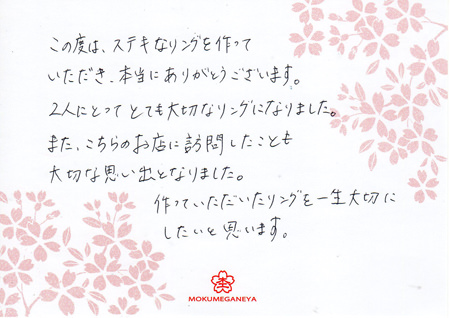 この度は、ステキなリングを作って
いただき、本当にありがとうございます。
2人にとってとても大切なリングになりました。
また、こちらのお店に訪問したことも
大切な思い出となりました。
作っていただいたリングを一生大切に
したいと思います。
MOKUMEGANEYA